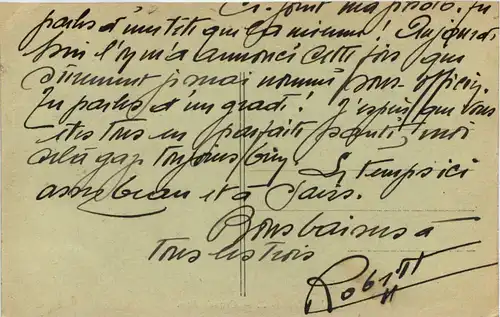 Ci-joint ma photo. Tu
parles d'une tête que l'ami !! Aujourd
hui l'on m'a annoncé cette fois que
sûrement je serai nommé sous-officier.
Tu parles d'un gradé ! J'espère que vous
êtes tous en parfaite santé, moi
cela gaz toujours bien. Le temps ici
assez beau et à Paris.
Bons baisers à
tous les trois
Robert